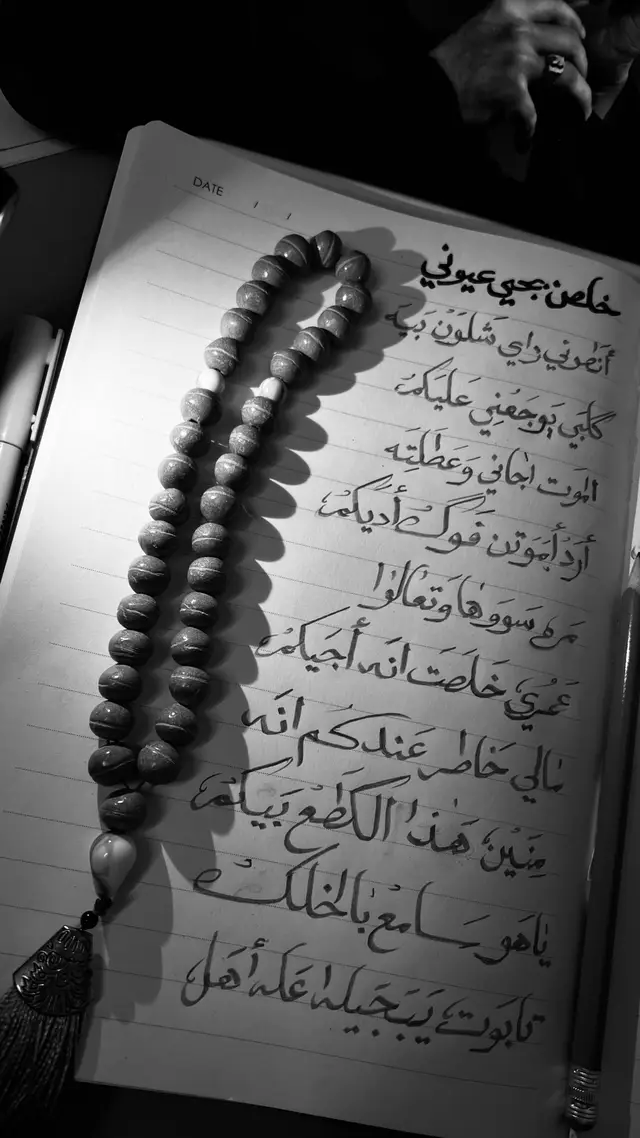 DATE / /
خلصن بحيي عيوني
أنطوني راي شلون بيه
گلبي يوجعني عليكم
الموت اجاني وعطلته
أرد أموتن فوگ أديكم
مره سووها وتعالوا
عمري خلصت انه أجيكم
مالي خاطر عندكم انه
منين هذا الگطع بيكم
ياهو سامع بالخلك
تابوت يبجيله عله أهل